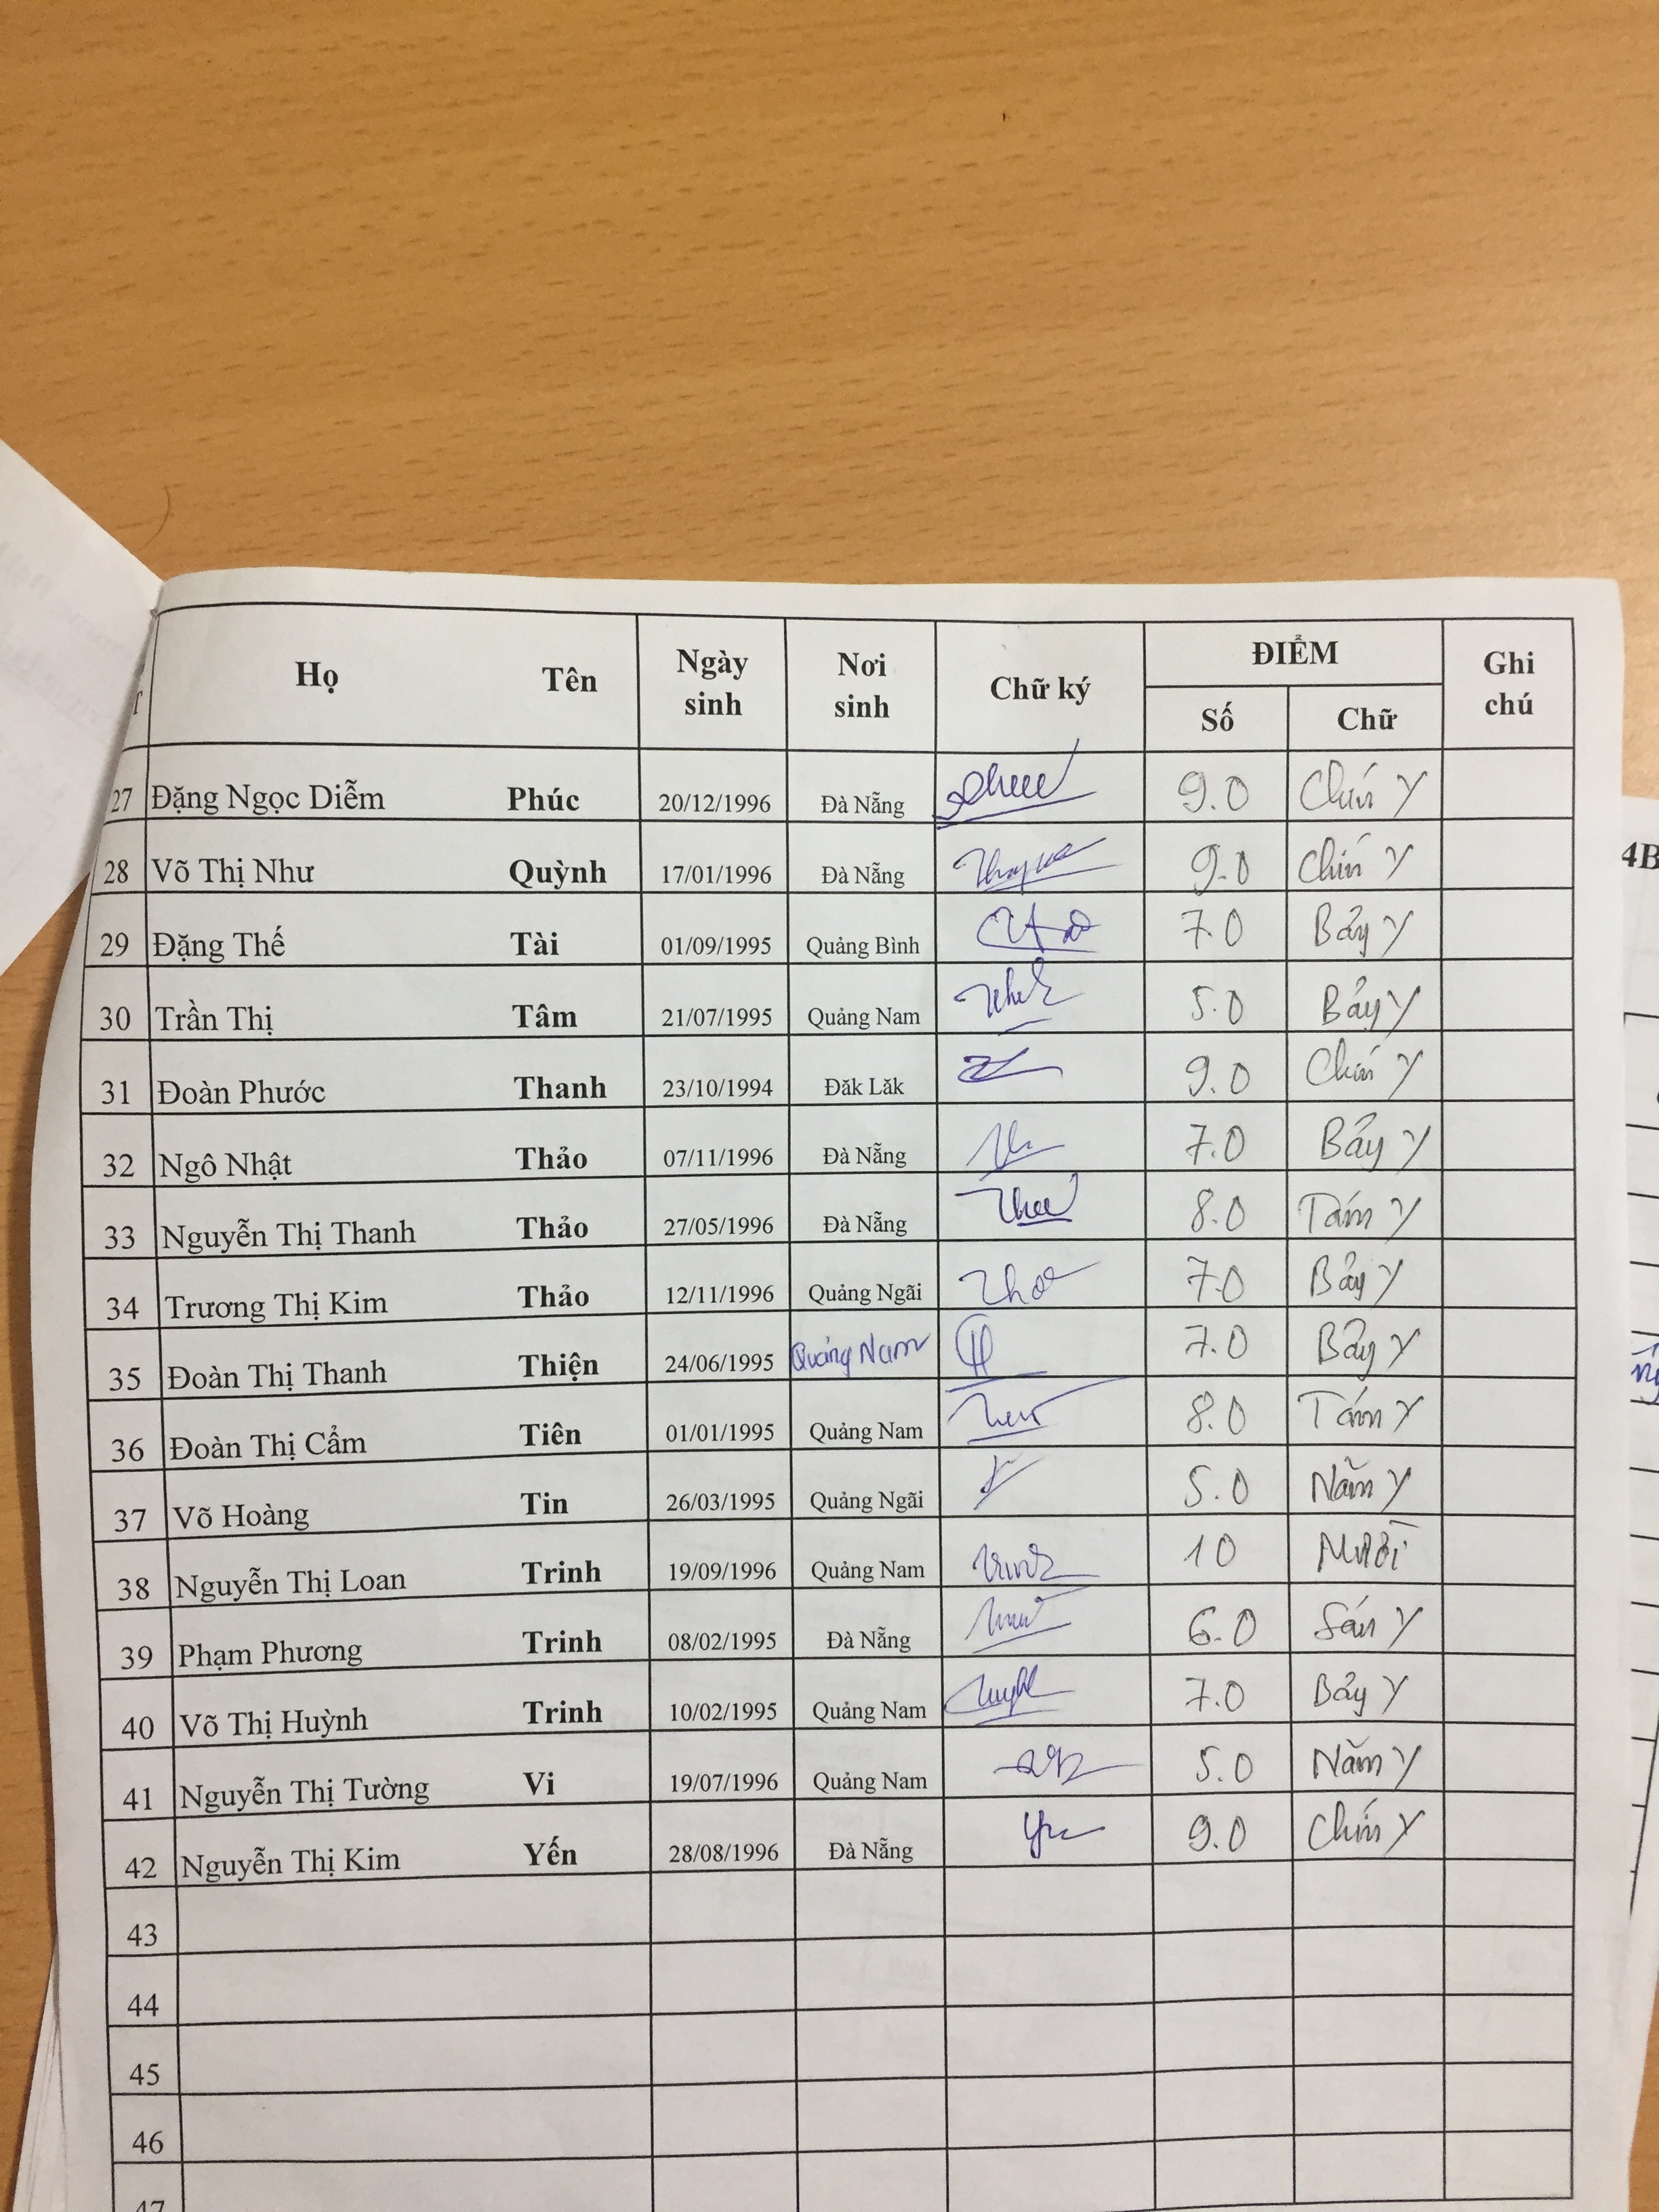 Họ Tên Ngày sinh Nơi sinh Chữ ký ĐIỂM Ghi chú
Số Chữ
27 Đặng Ngọc Diễm Phúc 20/12/1996 Đà Nẵng 9.0 Chín Y
28 Võ Thị Như Quỳnh 17/01/1996 Đà Nẵng 9.0 Chín Y
29 Đặng Thế Tài 01/09/1995 Quảng Bình 7.0 Bảy Y
30 Trần Thị Tâm 21/07/1995 Quảng Nam 5.0 Bảy Y
31 Đoàn Phước Thanh 23/10/1994 Đăk Lăk 9.0 Chín Y
32 Ngô Nhật Thảo 07/11/1996 Đà Nẵng 7.0 Bảy Y
33 Nguyễn Thị Thanh Thảo 27/05/1996 Đà Nẵng 8.0 Tám Y
34 Trương Thị Kim Thảo 12/11/1996 Quảng Ngãi 7.0 Bảy Y
35 Đoàn Thị Thanh Thiện 24/06/1995 Quảng Nam 7.0 Bảy Y
36 Đoàn Thị Cẩm Tiên 01/01/1995 Quảng Nam 8.0 Tám Y
37 Võ Hoàng Tin 26/03/1995 Quảng Ngãi 5.0 Năm Y
38 Nguyễn Thị Loan Trinh 19/09/1996 Quảng Nam 10 Mười
39 Phạm Phương Trinh 08/02/1995 Đà Nẵng 6.0 Sáu Y
40 Võ Thị Huỳnh Trinh 10/02/1995 Quảng Nam 7.0 Bảy Y
41 Nguyễn Thị Tường Vi 19/07/1996 Quảng Nam 5.0 Năm Y
42 Nguyễn Thị Kim Yến 28/08/1996 Đà Nẵng 9.0 Chín Y
43
44
45
46
47
4B